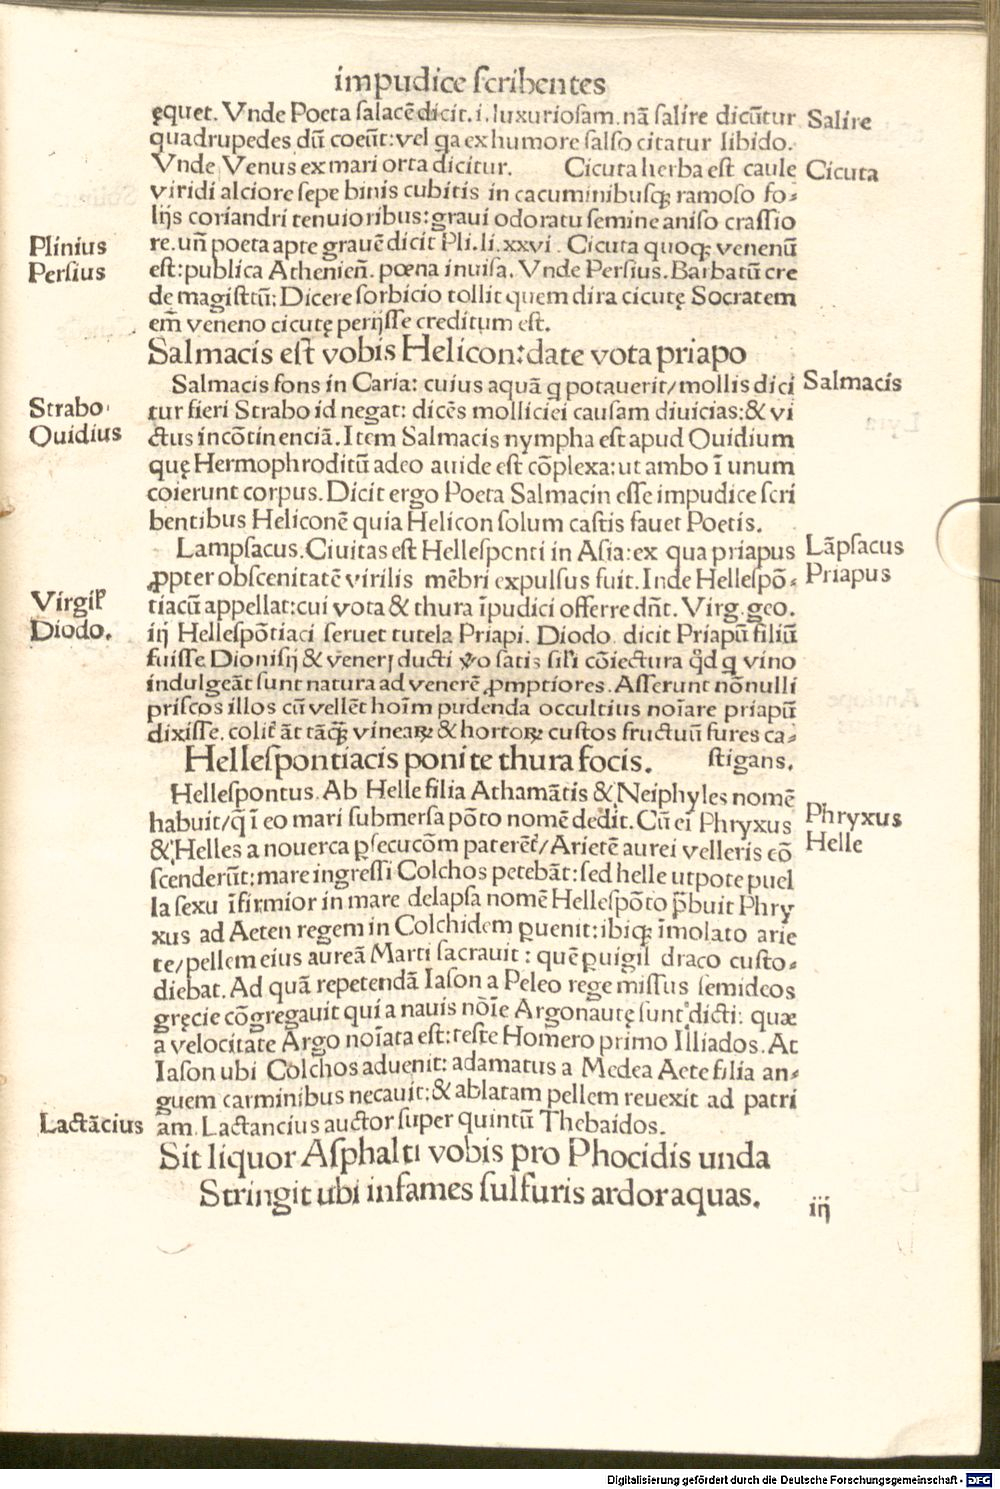 impudice ſcribentes
ęquet. Vnde Poeta ſalacē dicit. i. luxurioſam. nā ſalire dicūtur Salire
quadrupedes dū coeūt: vel qa ex humore ſalſo citatur libido.
Vnde Venus ex mari orta dicitur. Cicuta herba eſt caule Cicuta
viridi alciore ſepe binis cubitis in cacuminibuſqꝫ ramoſo fo-
lijs coriandri tenuioribus: graui odoratu ſemine aniſo craſſio
Plinius re. uñ poeta apte grauē dicit Pli. li. xxvi. Cicuta quoqꝫ venenū
Perſius eſt: publica Athenieñ. pœna inuiſa. Vnde Perſius. Barbatū cre
de magiſtrū: Dicere ſorbicio tollit quem dira cicutę Socratem
em̄ veneno cicutę perijſſe creditum eſt.
Salmacis eſt vobis Helicon: date vota priapo
Salmacis fons in Caria: cuius aquā q potauerit/ mollis dici Salmacis
Strabo tur fieri Strabo id negat: dicēs molliciei cauſam diuicias: & vi
Ouidius ctus incōtinenciā. Item Salmacis nympha eſt apud Ouidium
quę Hermophroditū adeo auide eſt cōplexa: ut ambo ī unum
coierunt corpus. Dicit ergo Poeta Salmacin eſſe impudice ſcri
bentibus Heliconē quia Helicon ſolum caſtis fauet Poetis.
Lampſacus. Ciuitas eſt Helleſponti in Aſia: ex qua priapus Lāpſacus
ꝓpter obſcenitatē virilis mēbri expulſus fuit. Inde Helleſpō- Priapus
Virgiƚ tiacū appellat: cui vota & thura īpudici offerre dn̄t. Virg. geo.
Diodo. iij Helleſpōtiaci ſeruet tutela Priapi. Diodo. dicit Priapū filiū
fuiſſe Dioniſij & venerꝭ ducti ꝟo ſatis ſiƚi cōiectura qͥd q vino
indulgeāt ſunt natura ad venerē ꝓmptiores. Aſſerunt nōnulli
priſcos illos cū vellēt hoīm pudenda occultius noīare priapū
dixiſſe. colit̉ āt tāqꝫ̄ vineaꝝ & hortoꝝ cuſtos fructuū fures ca-
Helleſpontiacis ponite thura focis. ſtigans.
Helleſpontus. Ab Helle filia Athamātis & Neiphyles nomē
habuit/ q̄ ī eo mari ſubmerſa pōto nomē dedit. Cū ei Phryxus Phryxus
& Helles a nouerca ꝑſecucōm paterēt̉/ Arietē aurei velleris cō Helle
ſcenderūt: mare ingreſſi Colchos petebāt: ſed helle utpote puel
la ſexu īfirmior in mare delapſa nomē Helleſpōto p̄buit Phry
xus ad Aeten regem in Colchidem ꝑuenit: ibiqꝫ īmolato arie
te/ pellem eius aureā Marti ſacrauit: quē ꝑuigil draco cuſto-
diebat. Ad quā repetendā Iaſon a Peleo rege miſſus ſemideos
gręcie cōgregauit qui a nauis nōīe Argonautę ſunt dicti: quæ
a velocitate Argo noīata eſt: teſte Homero primo Illiados. At
Iaſon ubi Colchos aduenit: adamatus a Medea Aete filia an-
guem carminibus necauit: & ablatam pellem reuexit ad patri
Lactācius am. Lactancius auctor ſuper quintū Thebaidos.
Sit liquor Aſphalti vobis pro Phocidis unda
Stringit ubi infames ſulfuris ardor aquas.
iij
Digitalisierung gefördert durch die Deutsche Forschungsgemeinschaft - DFG